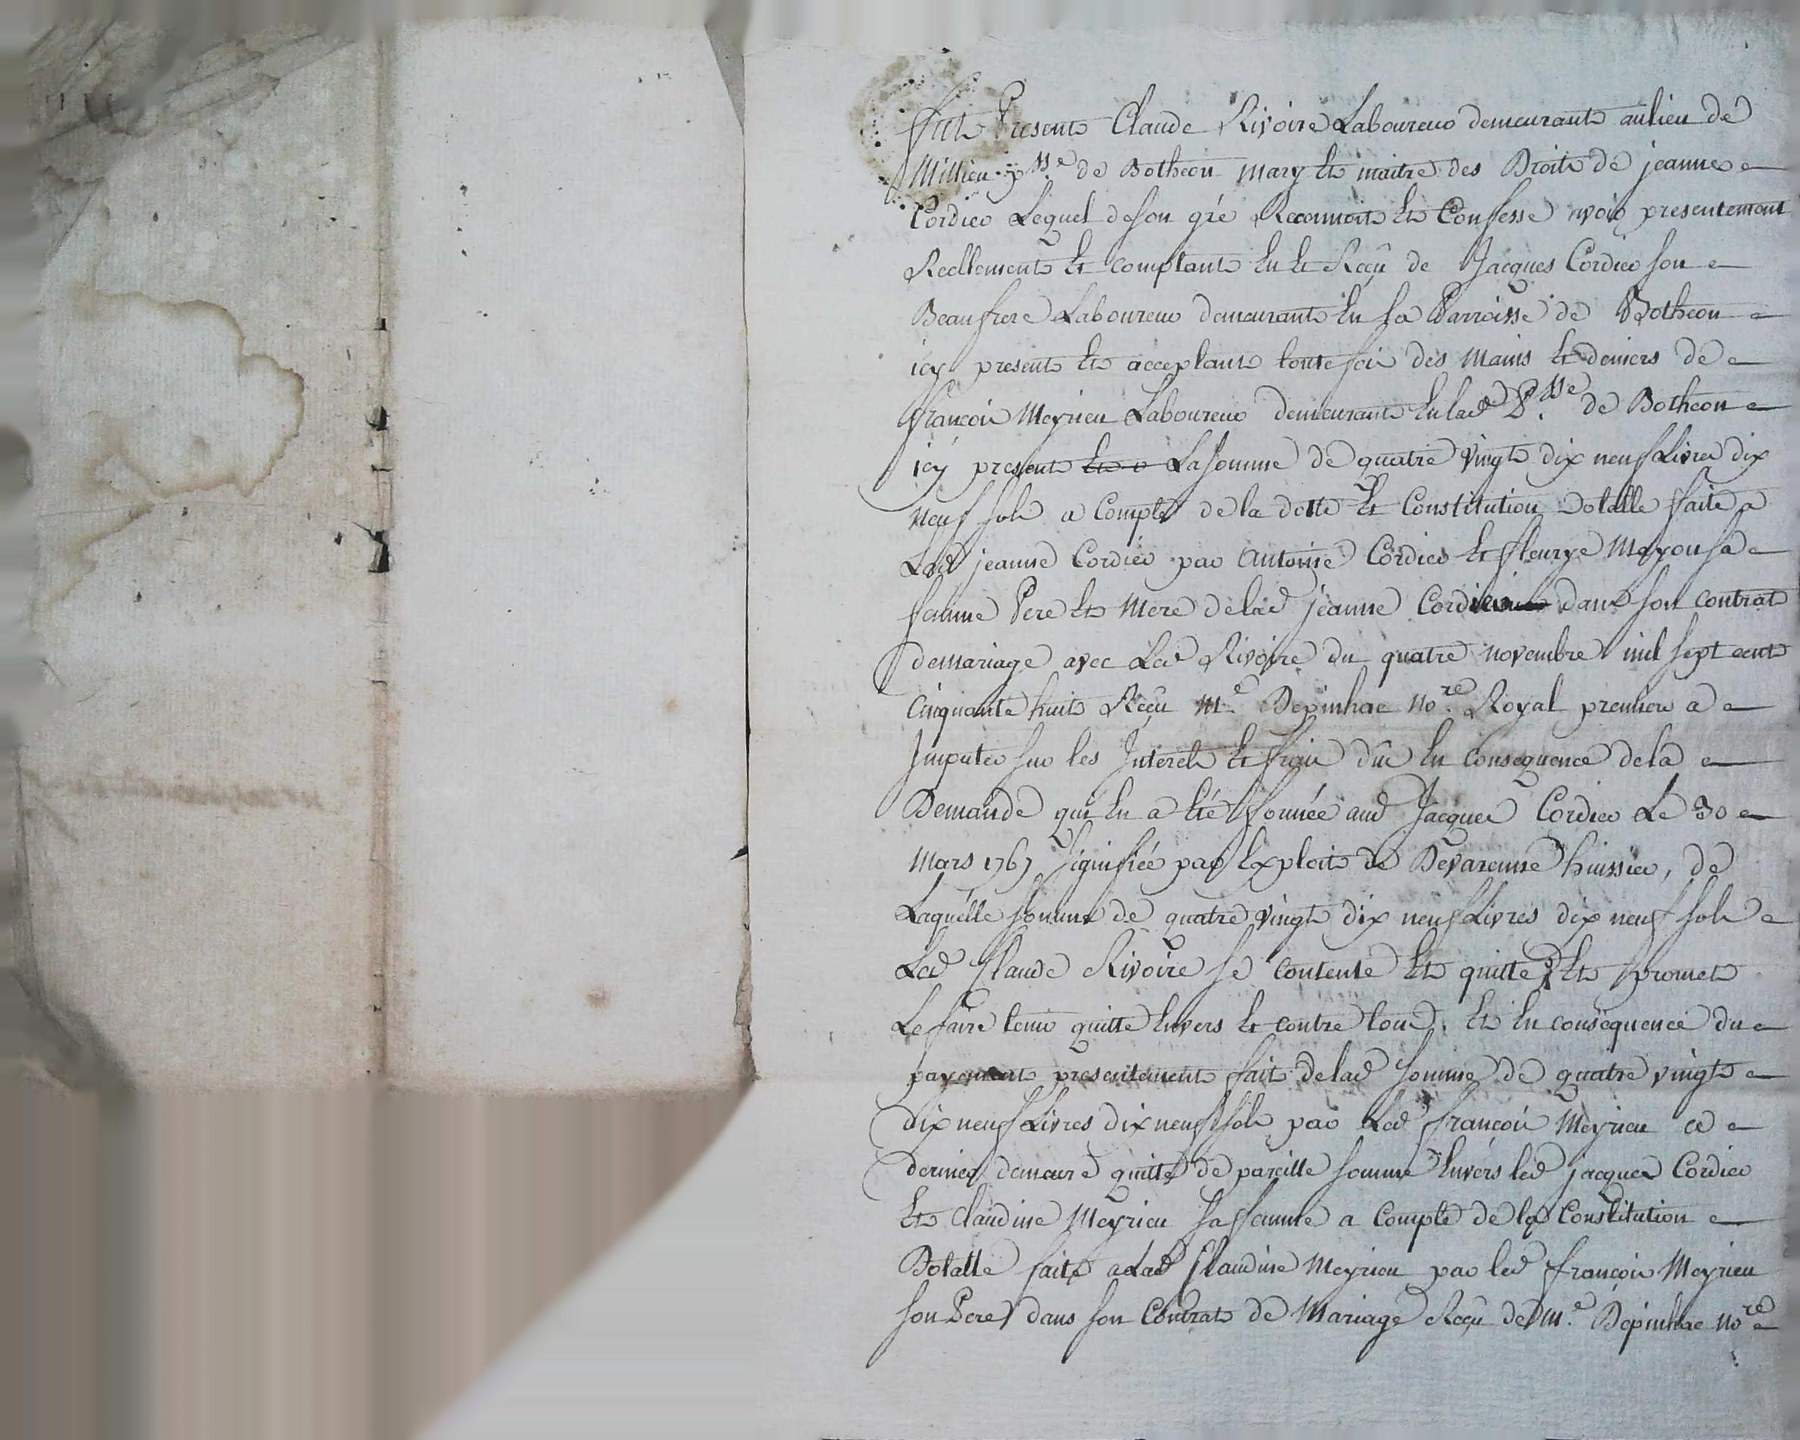 fut Present Claude Rivoire Laboureur demeurant au lieu de
Millieu psse. de Botheon mary Et maitre des Droits de jeanne
Cordier Lequel de son gré Reconnoit Et Confesse avoir presentement
Reellement Et comptant Eu Et Reçu de Jacques Cordier son
Beaufrere Laboureur demeurant En sa Parroisse de Botheon
icy present Et acceptant toutefois des mains Et deniers de
françois Meyrieu Laboureur demeurant En lad. Psse. de Botheon
icy present La somme de quatre vingt dix neuf Livres dix
neuf sols a Compte de la dotte Et Constitution dotalle faite a
Lad jeanne Cordier par antoine Cordier Et fleurye Mayon sa
femme Pere Et Mere de lad jeanne Cordier dans son contrat
de mariage avec Led Rivoire du quatre novembre mil sept cent
cinquante huit Reçu Me. Depinhac Nore. Royal premier a
Imputer sur les Interets Et frais dûs En Consequence de la
Demande qui En a Eté formée aud Jacques Cordier Le 30
Mars 1767 signifiée par Exploit de Devarenne huissier, de
Laquelle somme de quatre vingt dix neuf Livres dix neuf sols
Led Claude Rivoire se contente Et quitte Et promet
Le faire tenir quitte Envers Et contre tous. Et En consequence du
payement presentement fait de lad somme de quatre vingt
dix neuf Livres dix neuf sols par Led françois Meyrieu ce
dernier demeure quitte de pareille somme Envers led jacques Cordier
Et Claudine Meyrieu sa femme a Compte de la Constitution
Dotalle faite a Lad Claudine Meyrieu par led françois Meyrieu
son Pere dans son Contrat de Mariage Reçu de Me. Depinhac nore